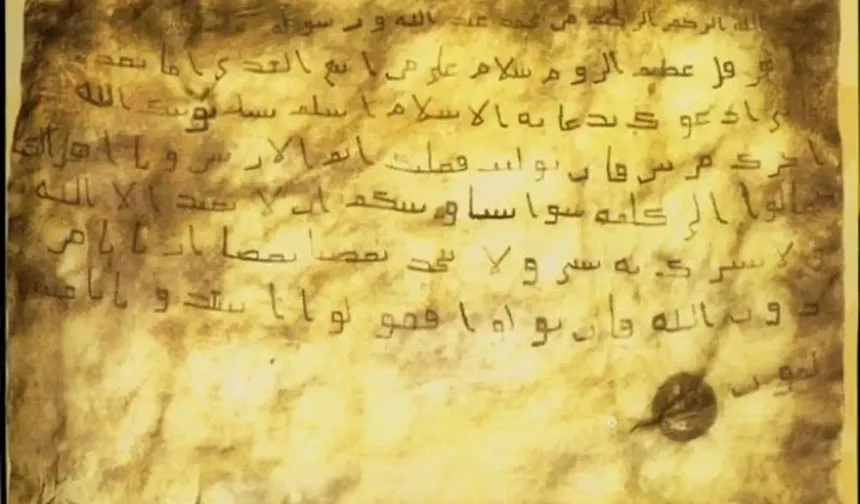 الله الرحمن الرحيم من محمد عبد الله و رسوله
هرقل عظيم الروم سلام على من اتبع الهدى اما بعد
نى ادعوك بدعاية الاسلام اسلم تسلم يوتك الله
اجرك مرتين فان توليت فعليك اثم الاريسين و يا اهل الكتا
تعالوا الى كلمة سوا بيننا وبينكم ان لا نعبد الا الله
و لا نشرك به شى و لا يتخذ بعضنا بعضا اربابا من
دون الله فان تولوا فقولوا اشهدوا بانا مس
لمون